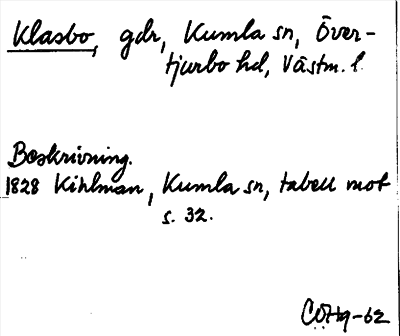 Klasbo, gdr, Kumla sn, Över-
tjurbo hd, Västm. l.
Beskrivning.
1828 Kihlman, Kumla sn, tabell mot
s. 32.